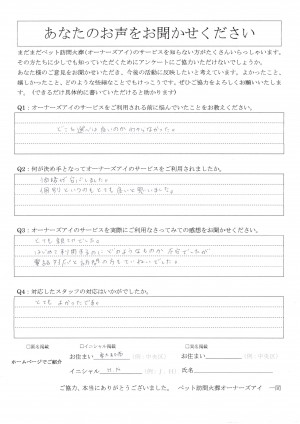 あなたのお声をお聞かせください
まだまだペット訪問火葬(オーナーズアイ)のサービスを知らない方がたくさんいらっしゃいます。
その方たちに少しでも知っていただくためにアンケートにご協力いただけないでしょうか。
あなた様のご意見をお聞かせいただき、今後の活動に反映したいと考えています。よかったこと、
嬉しかったこと、どのような些細なことでもけっこうです。ぜひご協力をよろしくお願いいたしま
す。(できるだけ具体的に書いていただけると助かります)
Q1:オーナーズアイのサービスをご利用される前に悩んでいたことをお教えください。
どこを選べば良いのか わからなかった。
Q2:何が決め手となってオーナーズアイのサービスをご利用されましたか。
価格が
個別というのもとても良いと思いました。
Q3:オーナーズアイのサービスを実際にご利用なさってみての感想をお聞かせください。
とても
はじめて利用するのにどのようなものか
Q4:対応したスタッフの対応はいかがでしたか。
とても よかったです。
□匿名掲載 □イニシャル掲載 □実名掲載
ホームページでご紹介 お住まい お住まい
イニシャル 氏名
ご協力、本当にありがとうございました。 ペット訪問火葬オーナーズアイ 一同